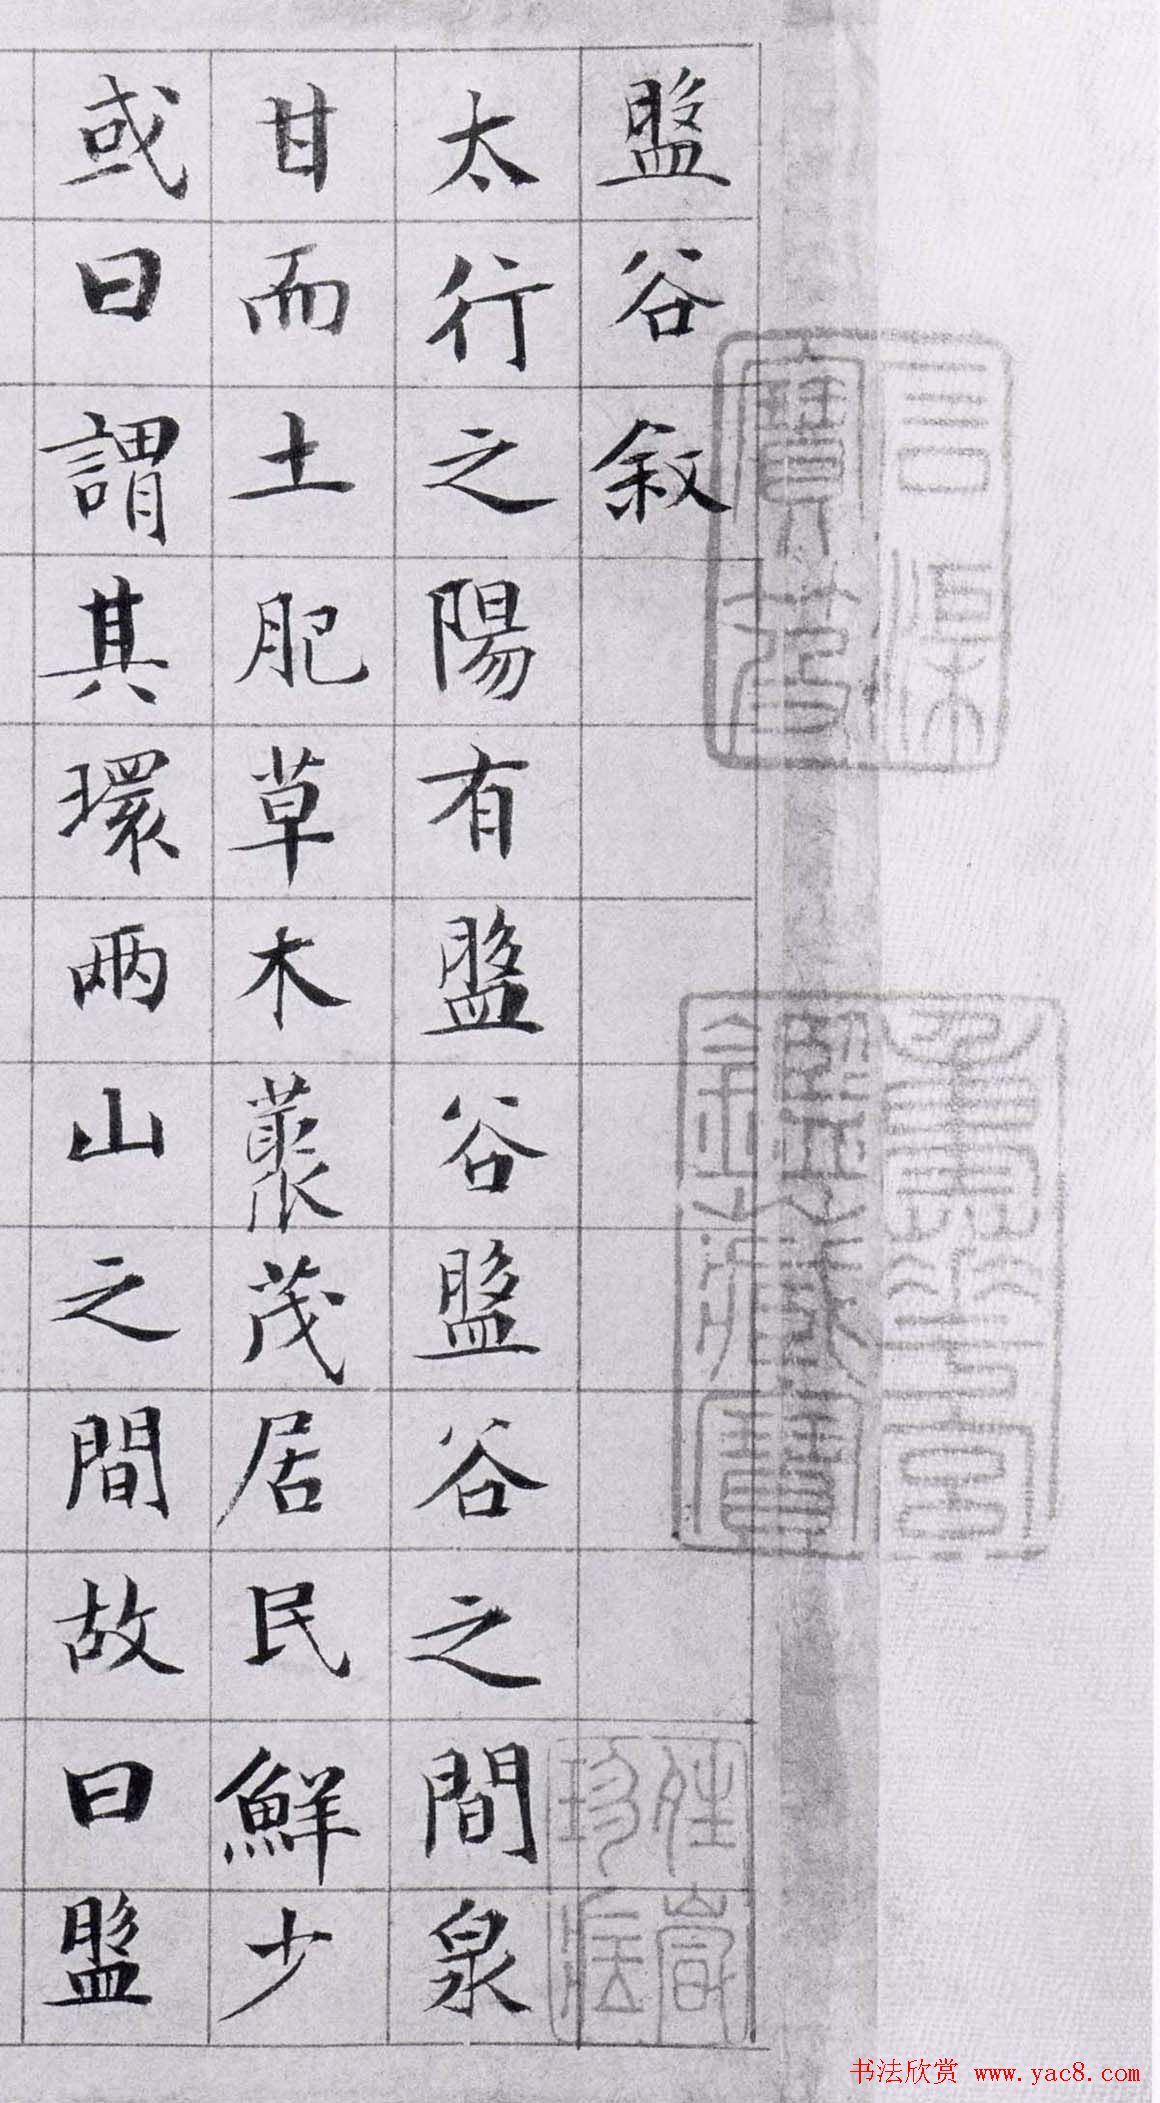 盤谷敘
太行之陽有盤谷盤谷之間泉
甘而土肥草木藂茂居民鮮少
或曰謂其環兩山之間故曰盤
书法欣赏 www.yac8.com